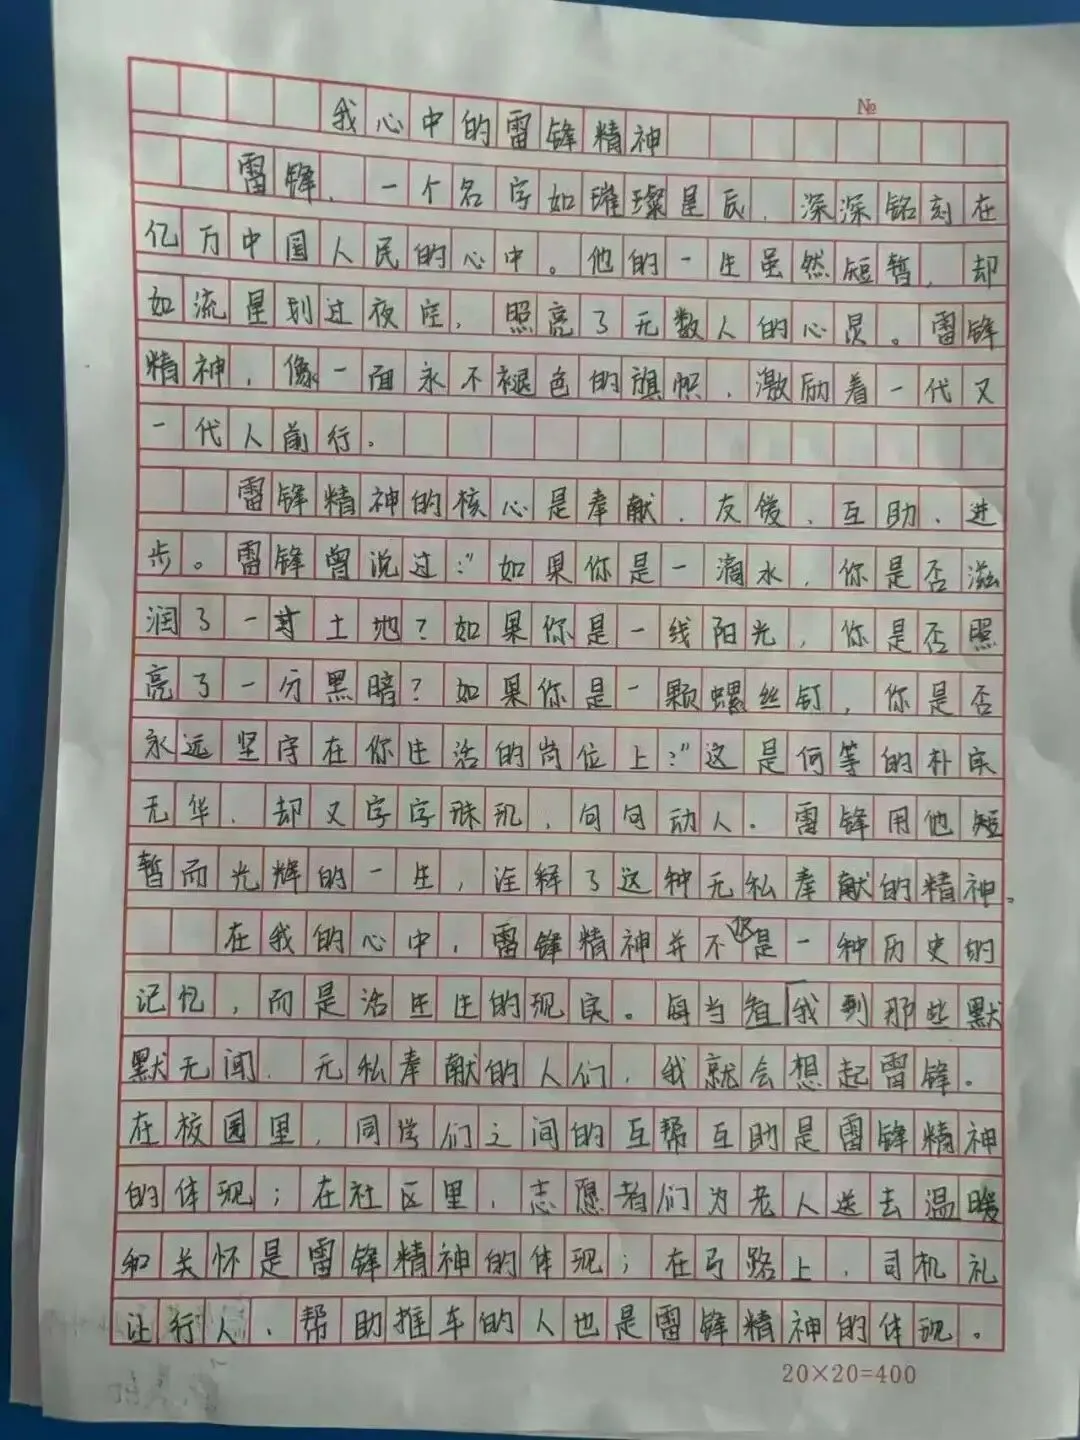 №
我心中的雷锋精神
雷锋,一个名字如璀璨星辰,深深铭刻在
亿万中国人民的心中。他的一生虽然短暂,却
如流星划过夜空,照亮了无数人的心灵。雷锋
精神,像一面永不褪色的旗帜,激励着一代又
一代人前行。
雷锋精神的核心是奉献、友爱、互助、进
步。雷锋曾说过:"如果你是一滴水,你是否滋
润了一寸土地?如果你是一线阳光,你是否照
亮了一分黑暗?如果你是一颗螺丝钉,你是否
永远坚守在你生活的岗位上?"这是何等的朴实
无华,却又字字珠玑,句句动人。雷锋用他短
暂而光辉的一生,诠释了这种无私奉献的精神。
在我的心中,雷锋精神并不仅是一种历史的
记忆,而是活生生的现实。每当看我到那些默
默无闻、无私奉献的人们,我就会想起雷锋。
在校园里,同学们之间的互帮互助是雷锋精神
的体现;在社区里,志愿者们为老人送去温暖
和关怀是雷锋精神的体现;在马路上,司机礼
让行人、帮助推车的人也是雷锋精神的体现。
20×20=400